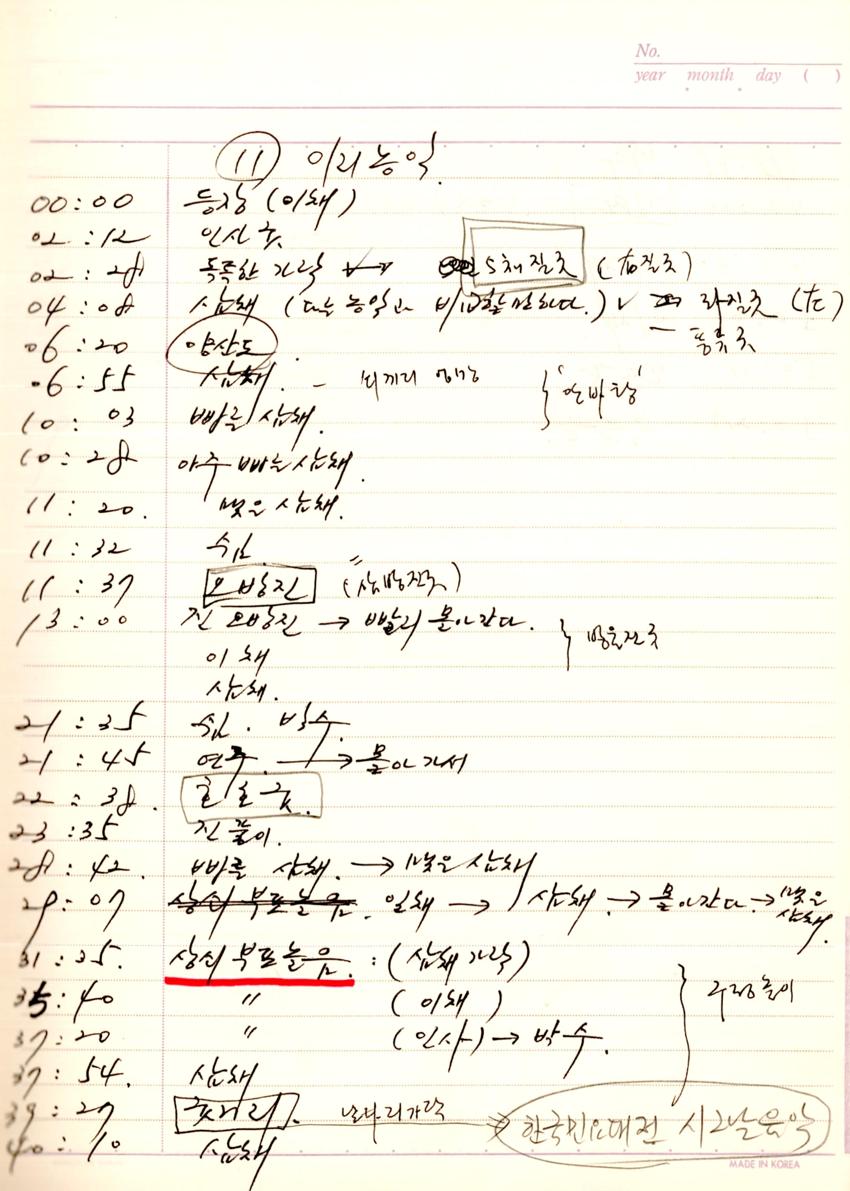 No.
year month day ( )
11 이리농악
00:00 등장 (이채)
02:12 인사굿
02:28 독특한 가락 5채질굿 (右질굿)
04:08 삼채 (다른 농악과 비교할만하다.) 좌질굿 (左)
06:20 양산도 - 풍류굿
06:55 삼채. -
10:03 빠른 삼채.
10:28 아주 빠른 삼채.
11:20. 맺은 삼채.
11:32 쉼.
11:37 오방진 (삼방진굿)
13:00 진 오방진 → 빨리 몰아간다.
이채
삼채.
21:35 쉼. 박수.
21:45 연주. → 몰아가서
22:38. 호호굿.
23:35 진풀이.
28:42. 빠른 삼채. → 맺은 삼채
29:07 상쇠 부포놀음. 일채 → 삼채. → 몰아간다. → 맺은 삼채.
31:25. 상쇠 부포놀음. : (삼채가락)
35:40 〃 (이채)
37:20 〃 (인사) → 박수.
구정놀이
37:54. 삼채
39:27 굿거리. 날나리가락
한국민요대전 시그날음악
40:10 삼채
MADE IN KOREA